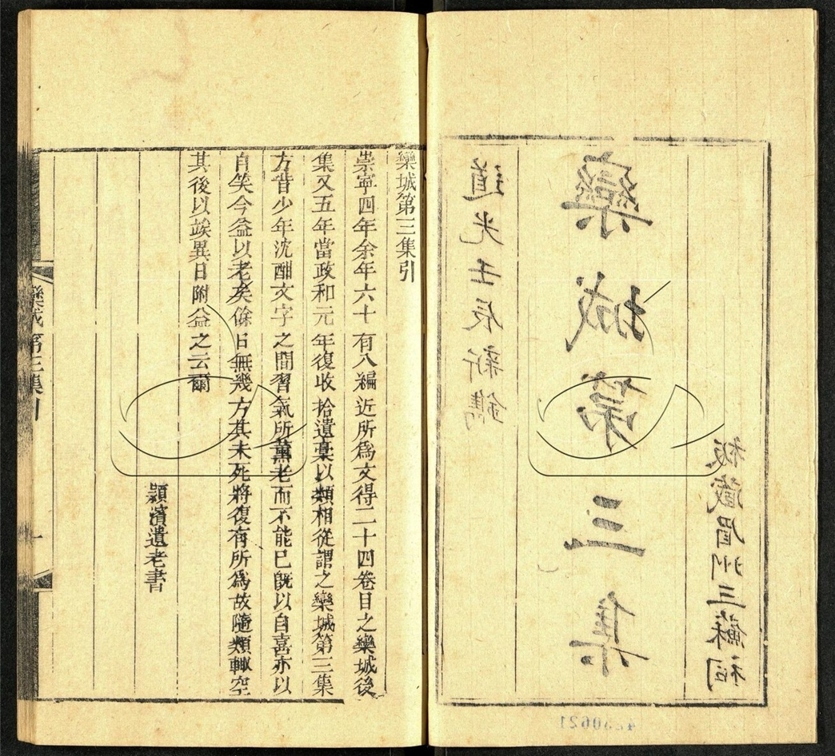 道光壬辰新鐫
欒城第三集
板藏眉州三蘇祠
欒城第三集引
崇寧四年余年六十有八編近所爲文得二十四卷目之欒城後
集又五年當政和元年復收拾遺稾以類相從謂之欒城第三集
方昔少年沈酣文字之間習氣所薰老而不能已旣以自喜亦以
自笑今益以老矣餘日無幾方其未死將復有所爲故隨類輙空
其後以竢異日附益之云爾
潁濱遺老書
欒城第三集引
一